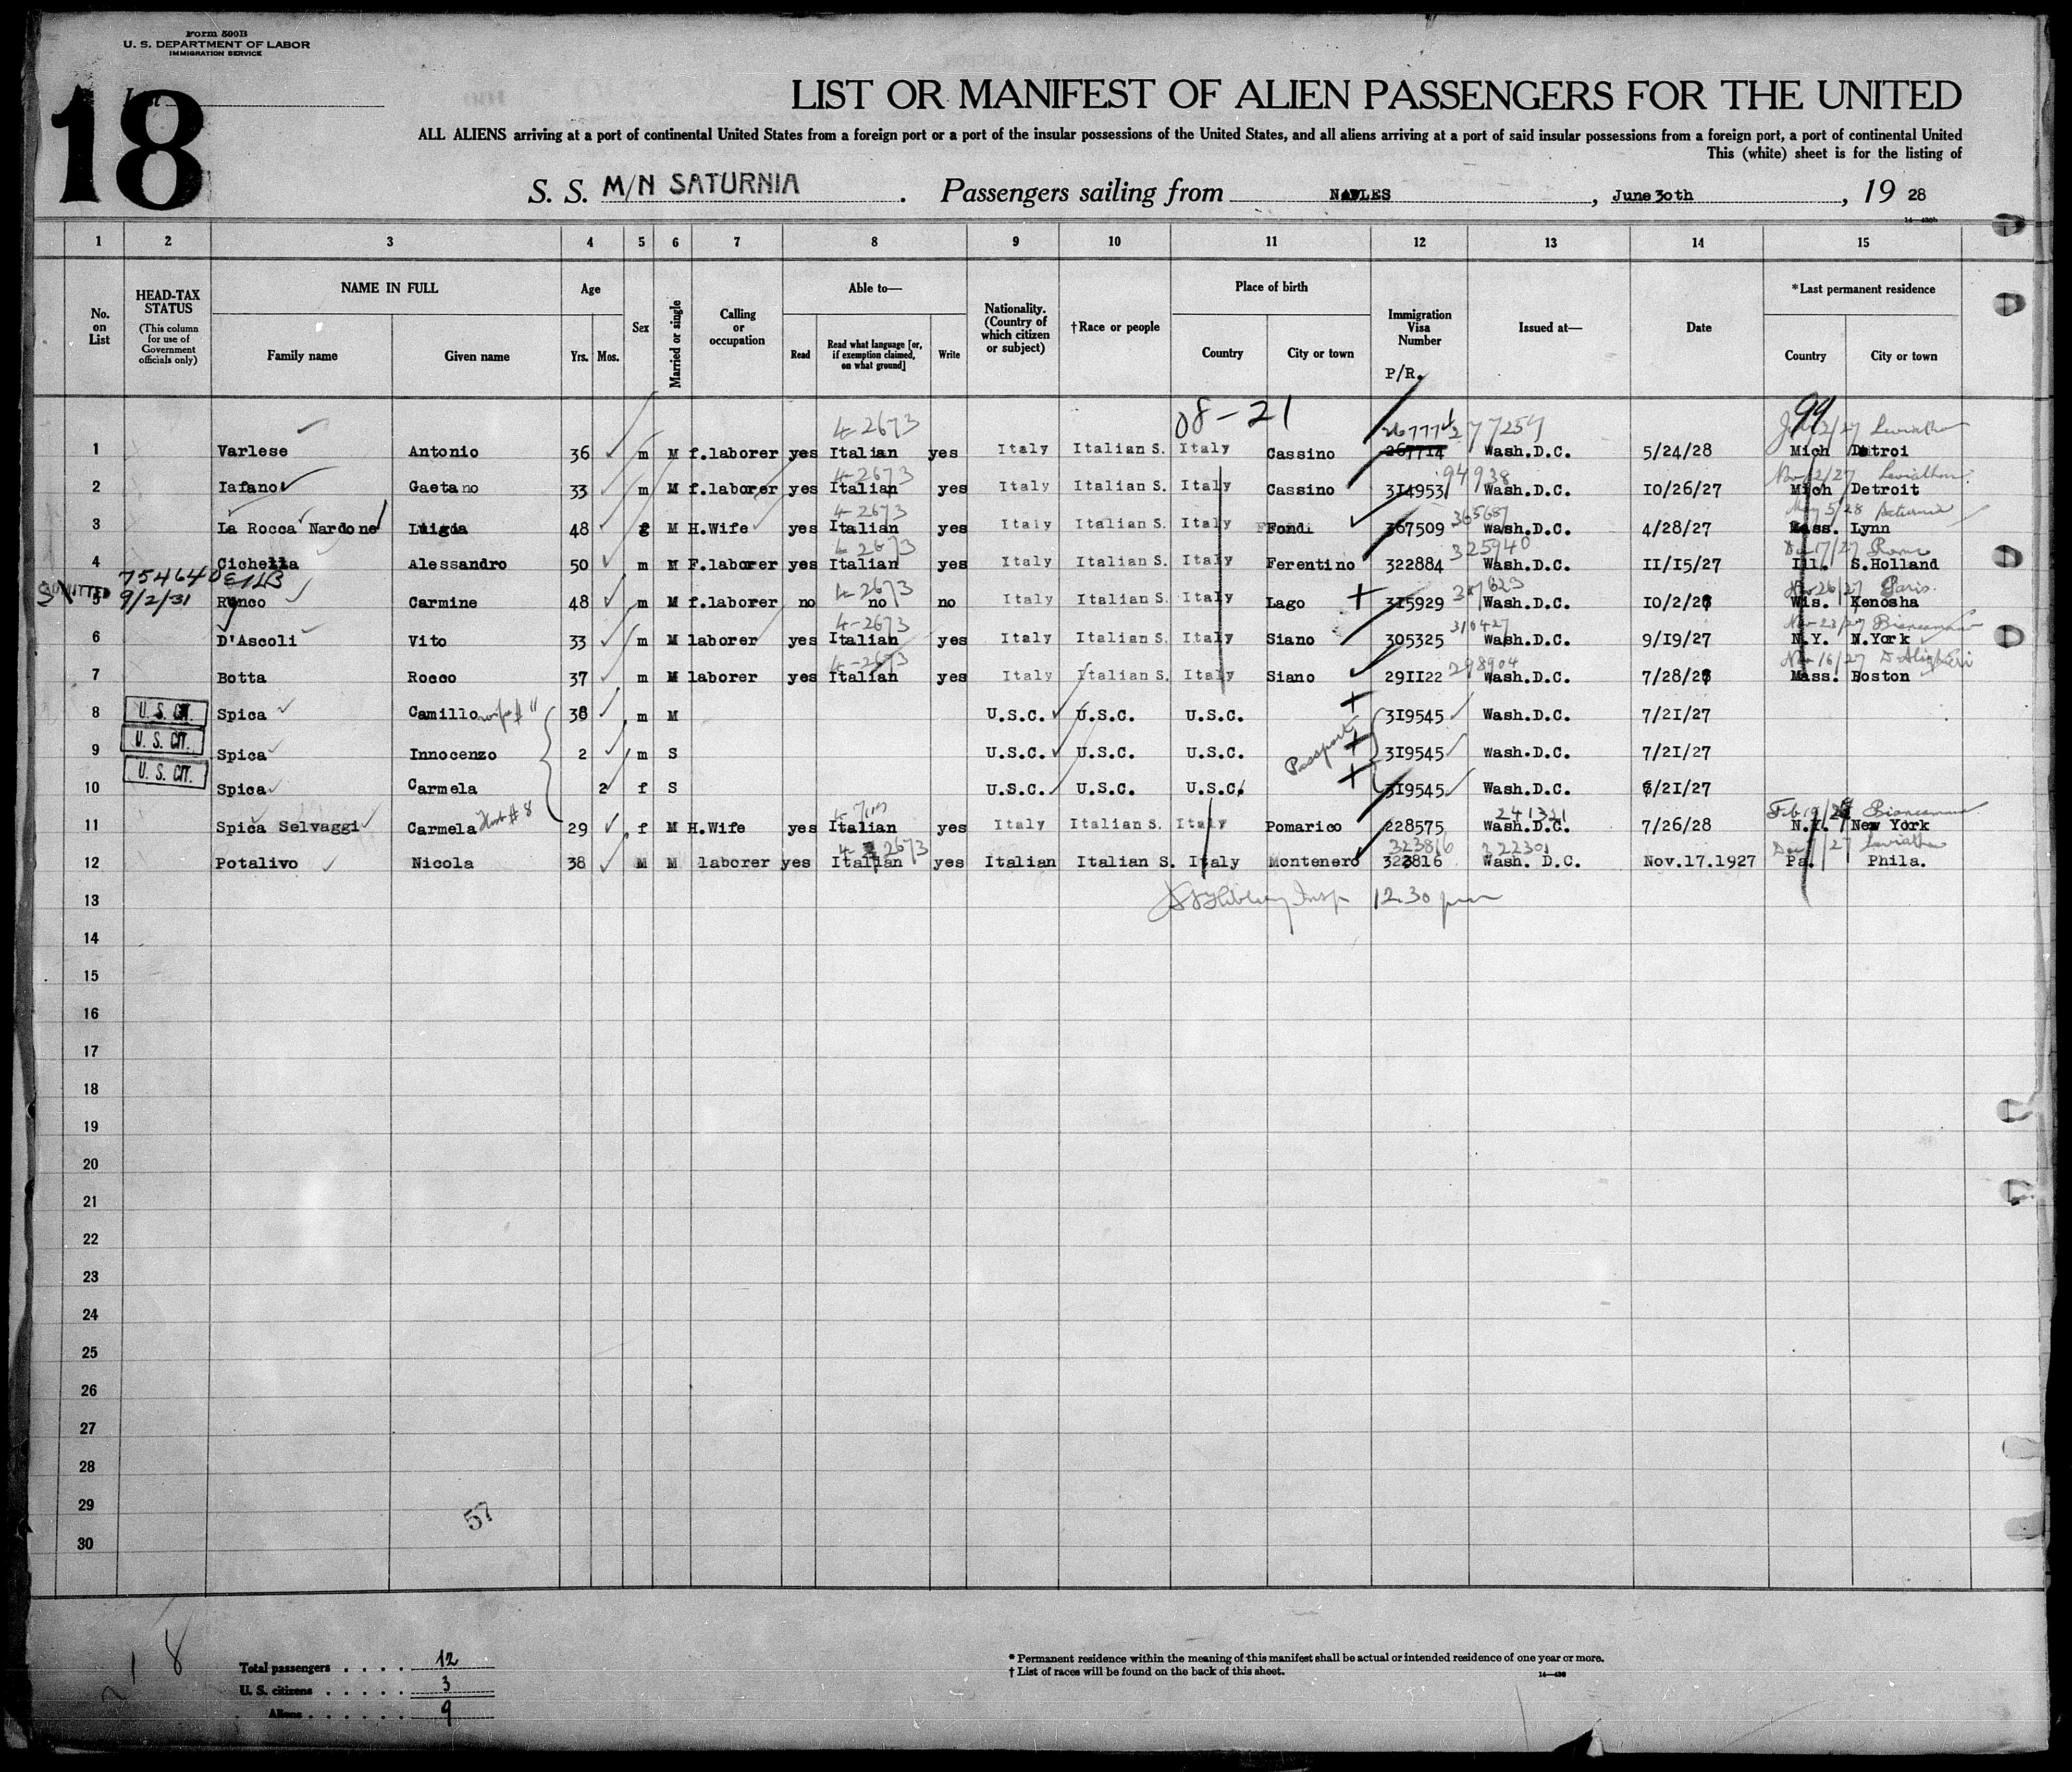 Form 500B
U. S. DEPARTMENT OF LABOR
IMMIGRATION SERVICE
18
List
LIST OR MANIFEST OF ALIEN PASSENGERS FOR THE UNITED
ALL ALIENS arriving at a port of continental United States from a foreign port or a port of the insular possessions of the United States, and all aliens arriving at a port of said insular possessions from a foreign port, a port of continental United
This (white) sheet is for the listing of
S. S. M/N SATURNIA . Passengers sailing from NAPLES , June 30th , 19 28
1 2 3 4 5 6 7 8 9 10 11 12 13 14 15
No. on List
HEAD-TAX STATUS (This column for use of Government officials only)
NAME IN FULL
Family name Given name
Age
Yrs. Mos.
Sex
Married or single
Calling or occupation
Able to—
Read Read what language [or, if exemption claimed, on what ground] Write
Nationality. (Country of which citizen or subject)
†Race or people
Place of birth
Country City or town
Immigration Visa Number
P/R.
Issued at—
Date
*Last permanent residence
Country City or town
08-21 99
4-2673 77257
1 Varlese Antonio 36 m M f.laborer yes Italian yes Italy Italian S. Italy Cassino 267714 Wash.D.C. 5/24/28 Mich Detroi
4-2673 94938 Nov 12/27 Leviathan
2 Iafano Gaetano 33 m M f.laborer yes Italian yes Italy Italian S. Italy Cassino 314953 Wash.D.C. 10/26/27 Mich Detroit
4-2673 365687 May 5/28 Saturnia
3 La Rocca Nardone Luigia 48 f M H.Wife yes Italian yes Italy Italian S. Italy Fondi 367509 Wash.D.C. 4/28/27 Mass. Lynn
4-2673 325940 Roma
4 Cichella Alessandro 50 m M F.laborer yes Italian yes Italy Italian S. Italy Ferentino 322884 Wash.D.C. 11/15/27 Ill. S.Holland
9/2/31 4-2673 Nov 26/27 Paris
5 Runco Carmine 48 m M f.laborer no no no Italy Italian S. Italy Lago 315929 Wash.D.C. 10/2/28 Wis. Kenosha
4-2673 310427 Nov 23/27 Biancamano
6 D'Ascoli Vito 33 m M laborer yes Italian yes Italy Italian S. Italy Siano 305325 Wash.D.C. 9/19/27 N.Y. N.York
4-2673 298904 Nov 16/27 D Alighieri
7 Botta Rocco 37 m M laborer yes Italian yes Italy Italian S. Italy Siano 291122 Wash.D.C. 7/28/28 Mass. Boston
8 U. S. CIT. Spica Camillo wife # 11 38 m M U.S.C. U.S.C. U.S.C. 319545 Wash.D.C. 7/21/27
Passport
9 U. S. CIT. Spica Innocenzo 2 m S U.S.C. U.S.C. U.S.C. 319545 Wash.D.C. 7/21/27
10 U. S. CIT. Spica Carmela 2 f S U.S.C. U.S.C. U.S.C. 319545 Wash.D.C. 6/21/27
241321 Biancamano
11 Spica Selvaggi Carmela Husb # 8 29 f M H.Wife yes Italian yes Italy Italian S. Italy Pomarico 228575 Wash.D.C. 7/26/28 N.Y. New York
4-2673 323816 Leviathan
12 Potalivo Nicola 38 M M laborer yes Italian yes Italian Italian S. Italy Montenero 323816 Wash. D.C. Nov.17.1927 Pa. Phila.
13 Insp 12.30 pm
14
15
16
17
18
19
20
21
22
23
24
25
26
27
28
29
57
30
18
Total passengers . . . . 12
U. S. citizens . . . . . 3
Aliens . . . . . . 9
* Permanent residence within the meaning of this manifest shall be actual or intended residence of one year or more.
† List of races will be found on the back of this sheet.